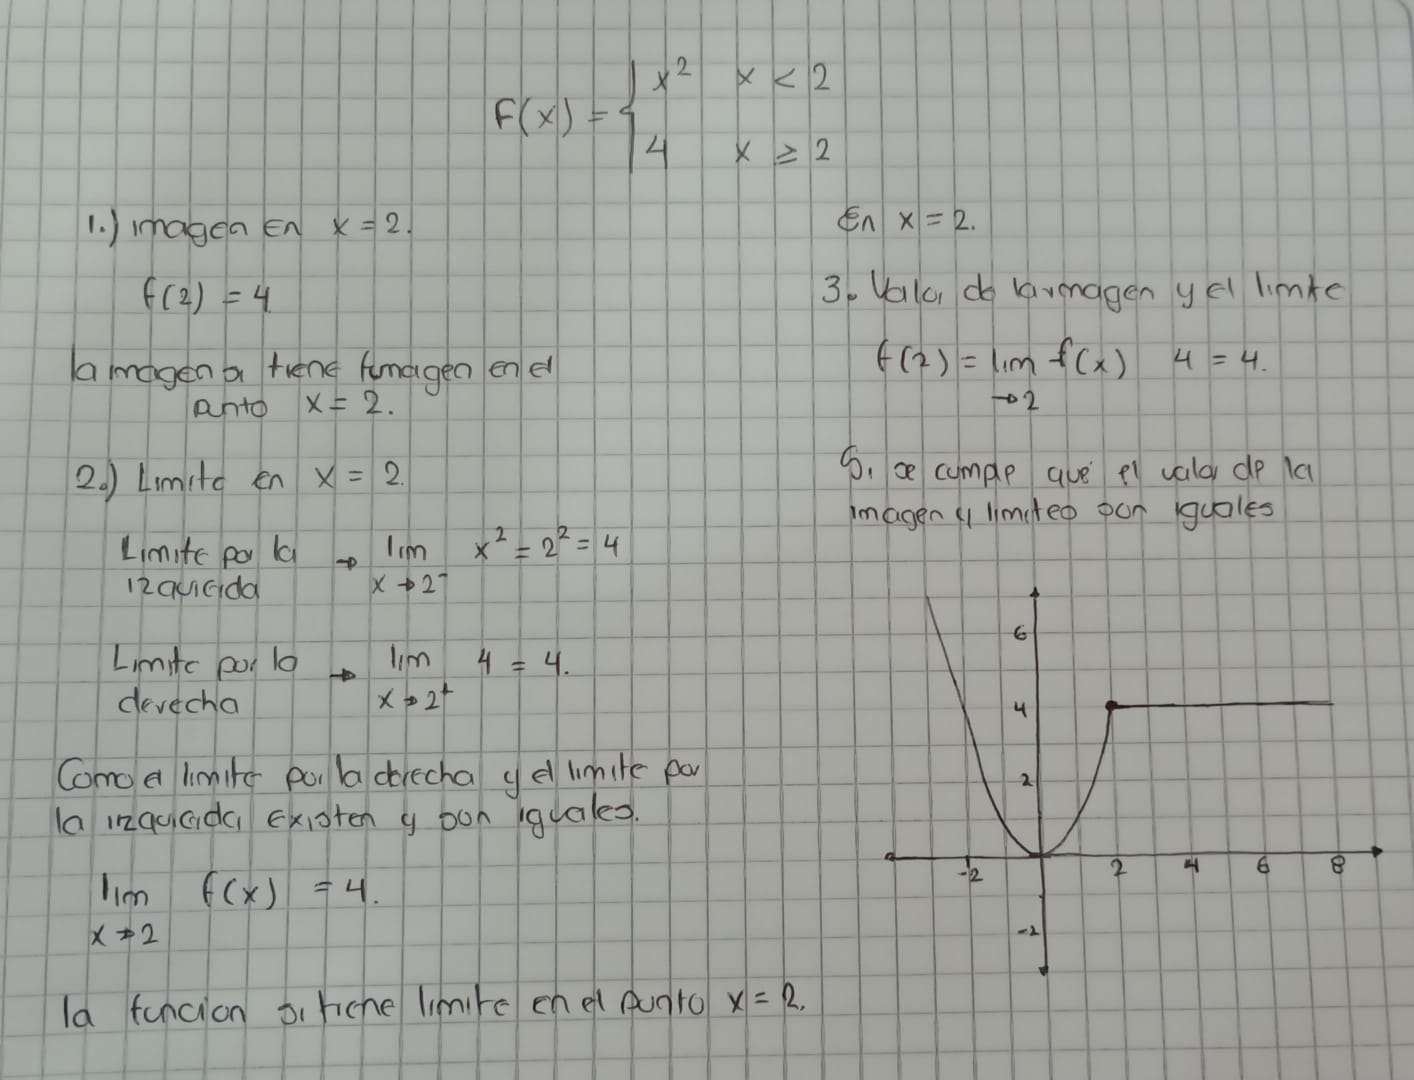 F(x) = { x² x < 2
4 x ≥ 2
1.) imagen En x = 2.
f(2) = 4
la imagen si tiene imagen en el
punto x = 2.
2.) Limite en x = 2.
Limite por la izquierda → lim x→2⁻ x² = 2² = 4
Limite por la derecha → lim x→2⁺ 4 = 4.
Como el limite por la derecha y el limite por
la izquierda existen y son iguales.
lim f(x) = 4.
x→2
la funcion si tiene limite en el punto x = 2.
En x = 2.
3. Valor de la imagen y el limite
f(2) = lim f(x) 4 = 4.
→2
Si se cumple que el valor de la
imagen y limites son iguales
6
4
2
-2 2 4 6 8
-2